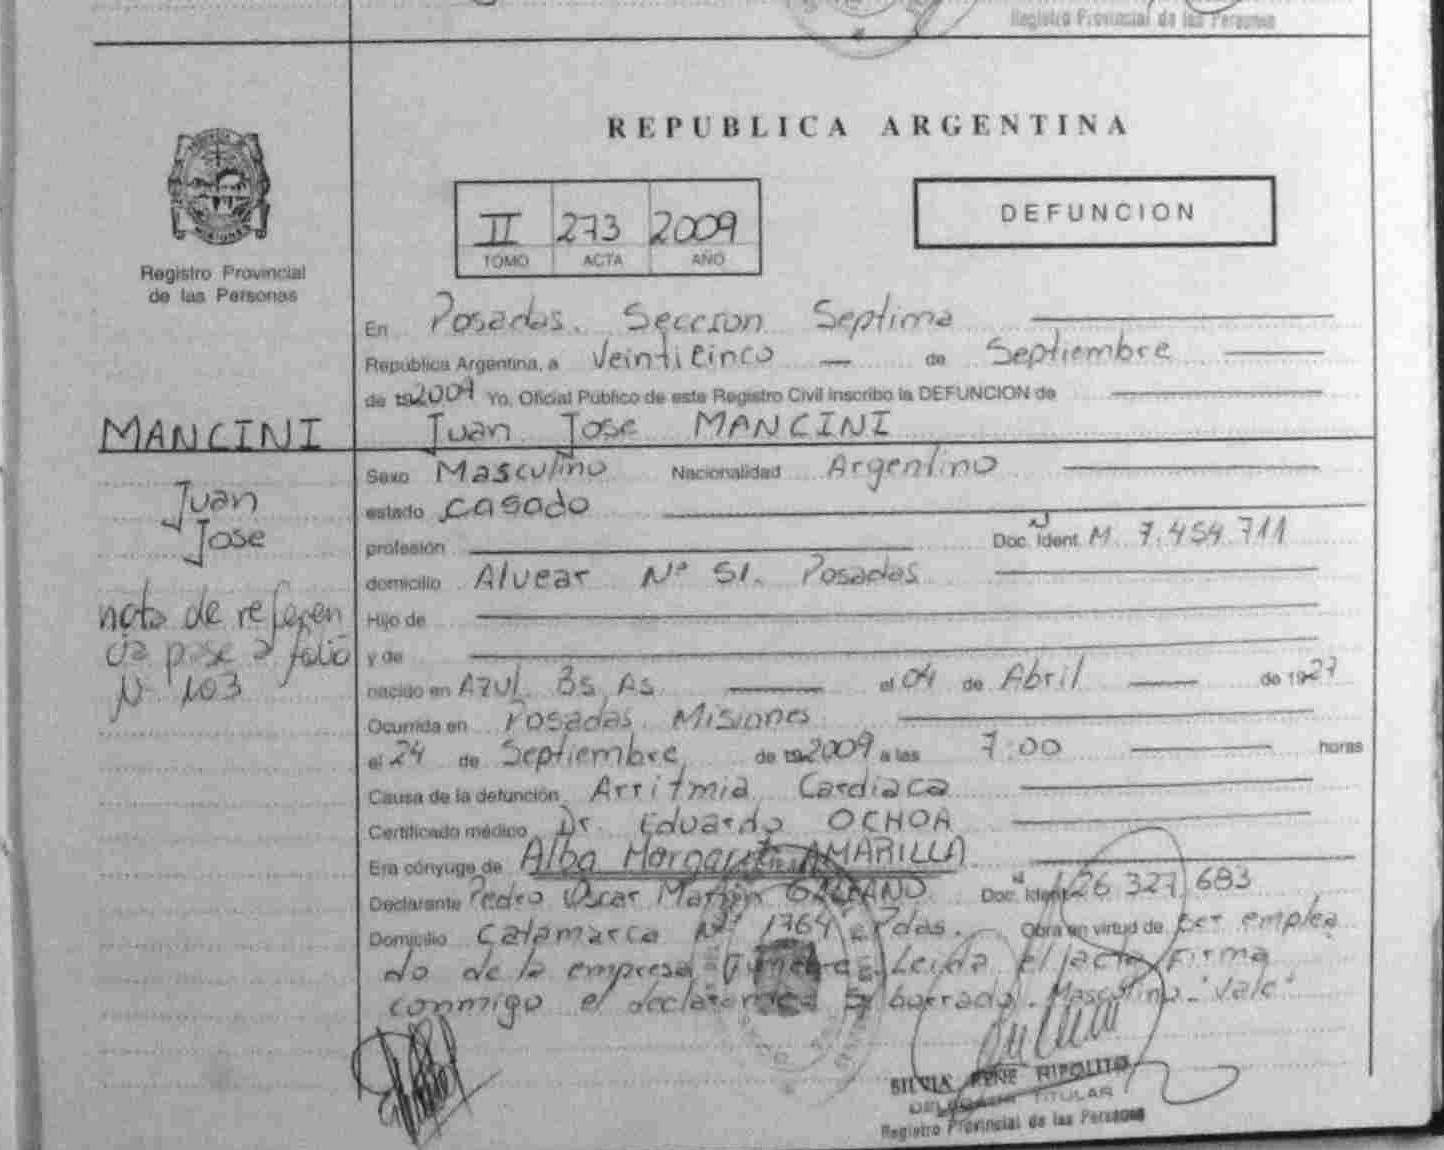 Registro Provincial de las Personas
REPUBLICA ARGENTINA
II 273 2009
TOMO ACTA AÑO
DEFUNCION
Registro Provincial
de las Personas
En Posadas. Seccion Septima
República Argentina, a Veinticinco — de Septiembre
de 2009 Yo, Oficial Público de este Registro Civil inscribo la DEFUNCION de
MANCINI
Juan Jose MANCINI
Juan
Jose
Sexo Masculino Nacionalidad Argentino
estado casado
profesión Doc. Ident. M. 7.454.711
domicilio Alvear Nº 51. Posadas
nota de referen
cia pase a folio
Nº 103
Hijo de
y de
nacido en AZUL. Bs. As. — el 04 de Abril — de 1927
Ocurrida en Posadas. Misiones
el 24 de Septiembre de 2009 a las 7:00 horas
Causa de la defunción Arritmia Cardiaca
Certificado médico Dr. Eduardo OCHOA
Era cónyuge de Alba Margarita AMARILLA
Declarante Pedro Oscar Martin GALEANO Doc. Ident. 26.327.683
Domicilio Catamarca Nº 1764 Pdas. Obra en virtud de ser emplea
do de la empresa Leida el acta firma
conmigo el declarante borrado. Masculino. "Vale"
SILVIA RENE RIPOLITO
DELEGADA TITULAR
Registro Provincial de las Personas